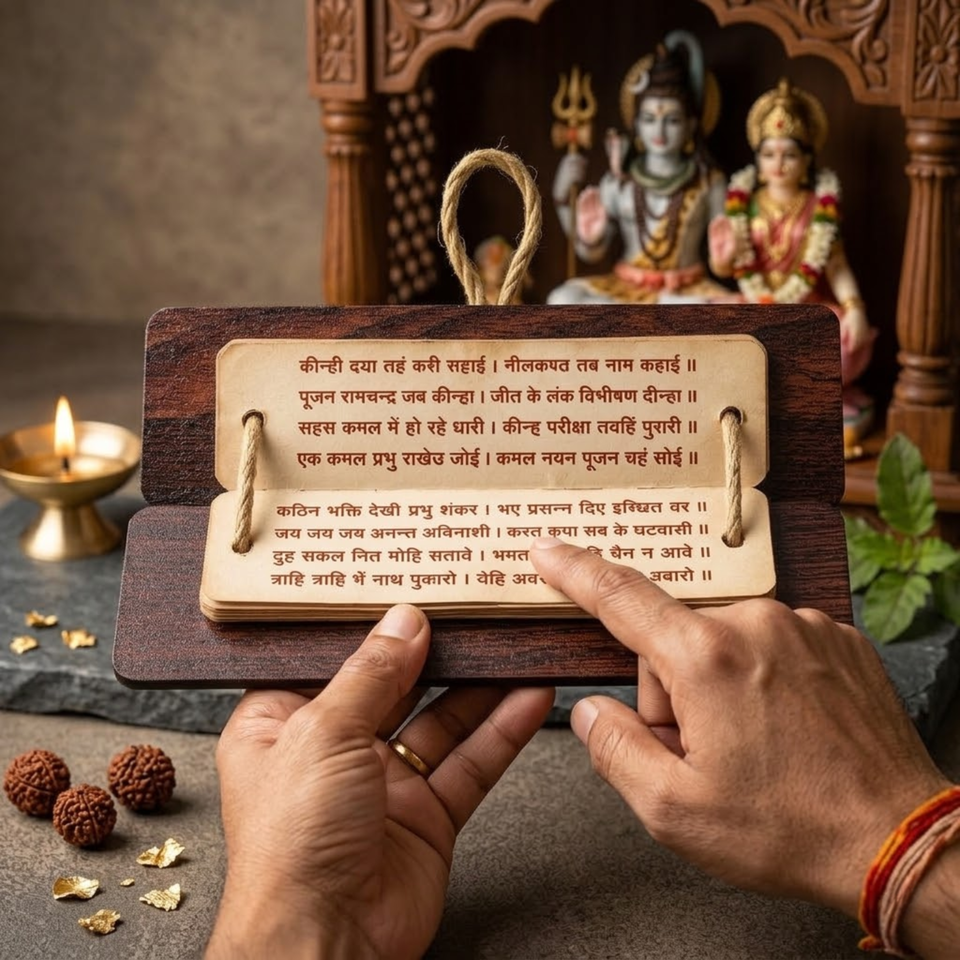 कीन्ही दया तहं करी सहाई । नीलकण्ठ तब नाम कहाई ॥
पूजन रामचन्द्र जब कीन्हा । जीत के लंक विभीषण दीन्हा ॥
सहस कमल में हो रहे धारी । कीन्ह परीक्षा तवहिं पुरारी ॥
एक कमल प्रभु राखेउ जोई । कमल नयन पूजन चहं सोई ॥
कठिन भक्ति देखी प्रभु शंकर । भए प्रसन्न दिए इच्छित वर ॥
जय जय जय अनन्त अविनाशी । करत कृपा सब के घटवासी ॥
दुह सकल नित मोहि सतावे । भमत चैन न आवे ॥
त्राहि त्राहि भें नाथ पुकारो । वेहि ॥